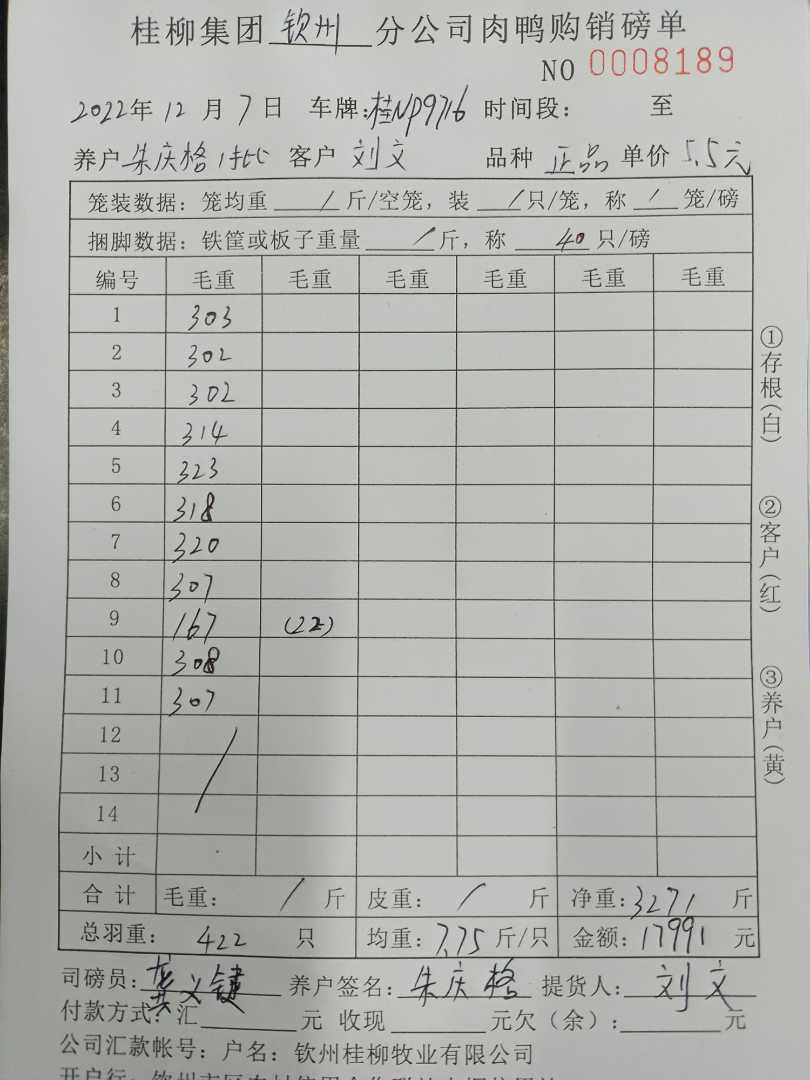 桂柳集团 钦州 分公司肉鸭购销磅单
NO 0008189
2022年 12 月 7 日 车牌:桂NP9716 时间段: 至
养户 朱庆格 1批 客户 刘文 品种 正品 单价 5.5元
笼装数据: 笼均重 / 斤/空笼, 装 / 只/笼, 称 / 笼/磅
捆脚数据: 铁筐或板子重量 / 斤, 称 40 只/磅
编号 毛重 毛重 毛重 毛重 毛重 毛重
1 303
2 302
3 302
4 314
5 323
6 318
7 320
8 307
9 167 (22)
10 308
11 307
12
13
14
小 计
合 计 毛重: / 斤 皮重: / 斤 净重: 3271 斤
总羽重: 422 只 均重: 7.75 斤/只 金额: 17991 元
司磅员: 龚义键 养户签名: 朱庆格 提货人: 刘文
付款方式: 汇 元 收现 元欠(余): 元
公司汇款帐号: 户名: 钦州桂柳牧业有限公司
①存根(白)
②客户(红)
③养户(黄)